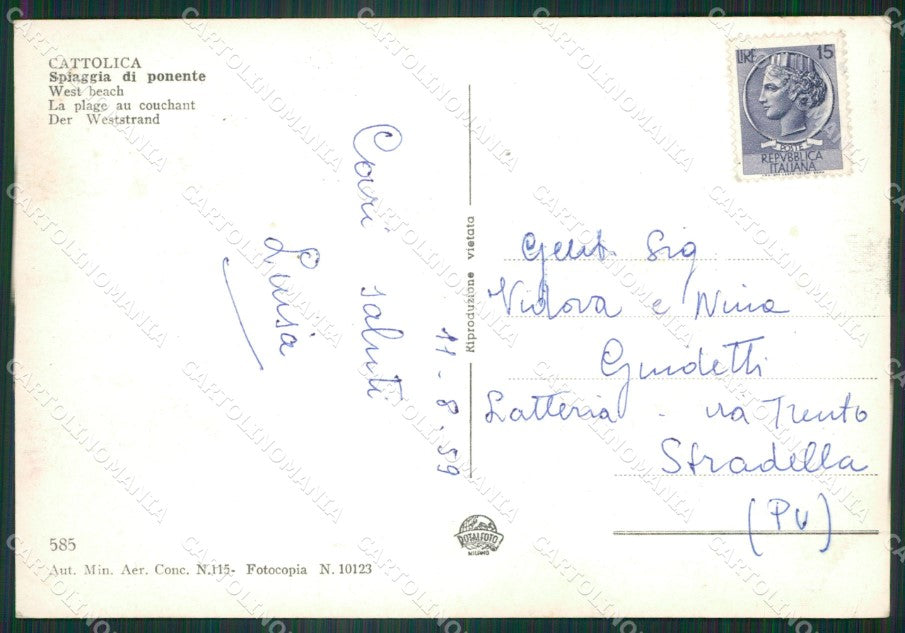 CATTOLICA
Spiaggia di ponente
West beach
La plage au couchant
Der Weststrand
LIRE 15
POSTE
REPVBBLICA
ITALIANA
Cari saluti
Luisa
11-8.59
Riproduzione vietata
Gent. Sig
e Nina
Guidetti
Latteria - via Trento
Stradella
(PV)
ROTALFOTO
MILANO
585
Aut. Min. Aer. Conc. N.115- Fotocopia N. 10123
CARTOLINOMANIA